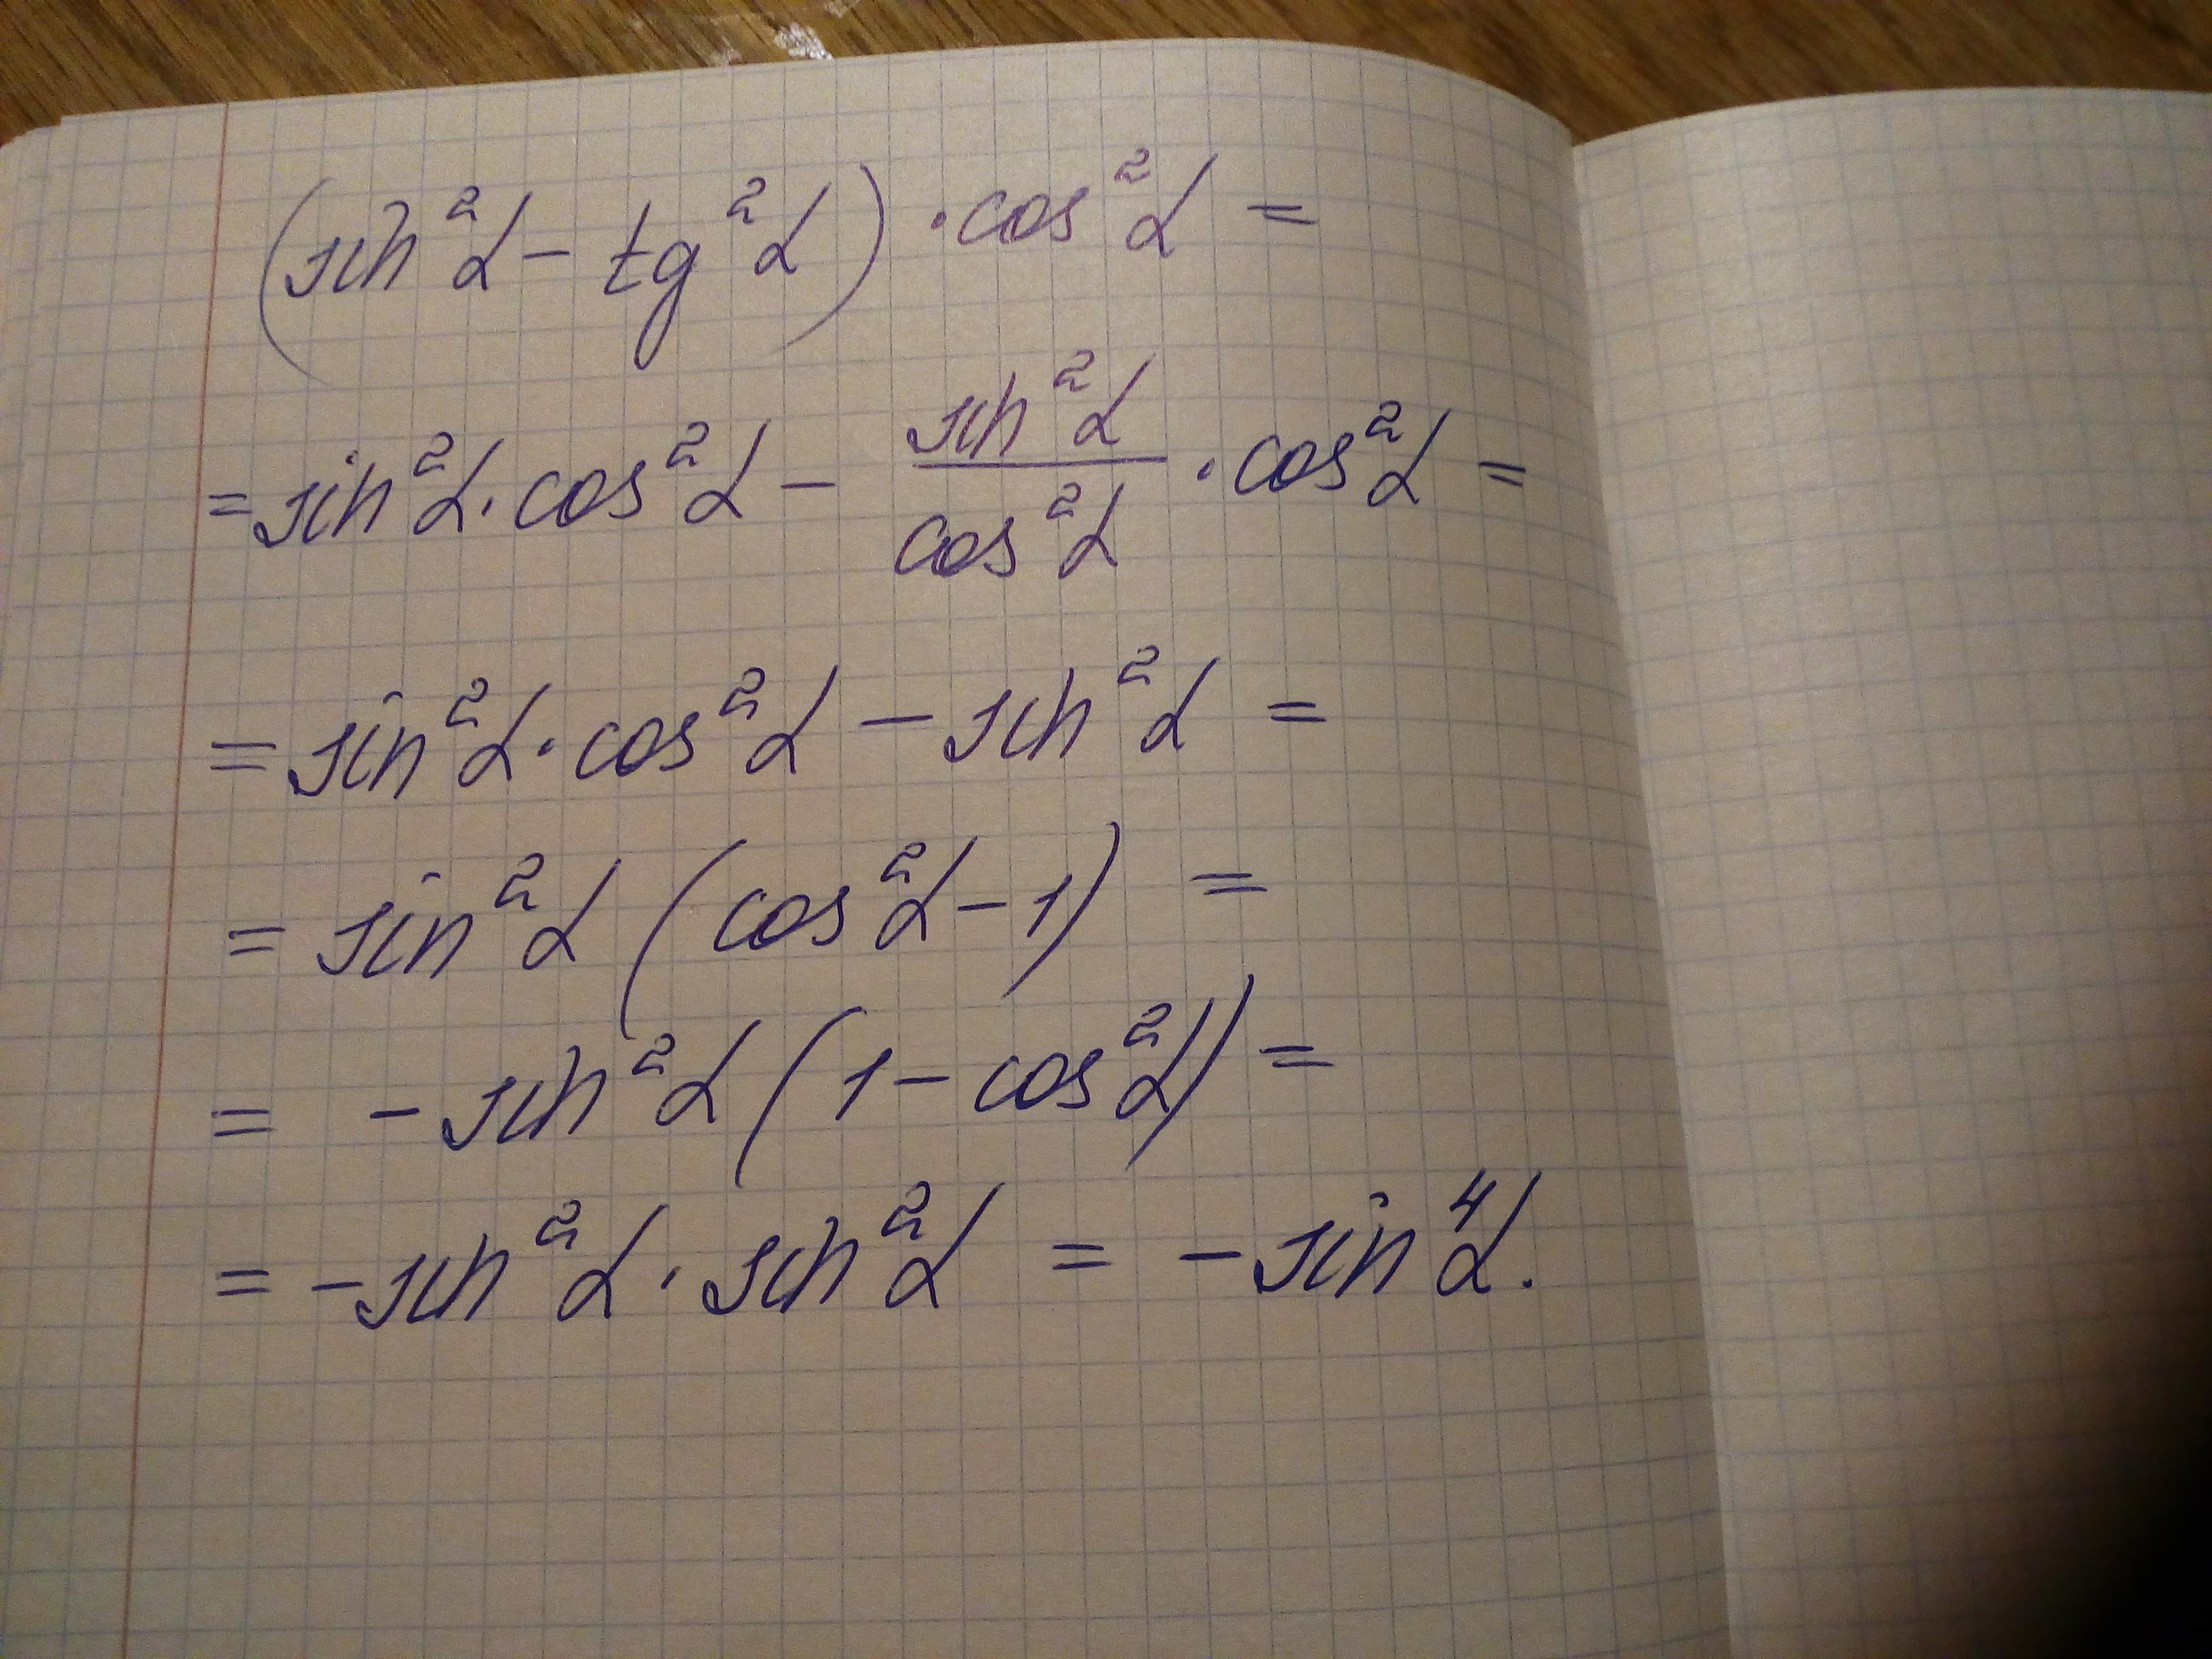 (sin²α − tg²α) · cos²α =
= sin²α · cos²α − sin²α/cos²α · cos²α =
= sin²α · cos²α − sin²α =
= sin²α (cos²α − 1) =
= − sin²α (1 − cos²α) =
= − sin²α · sin²α = − sin⁴α.